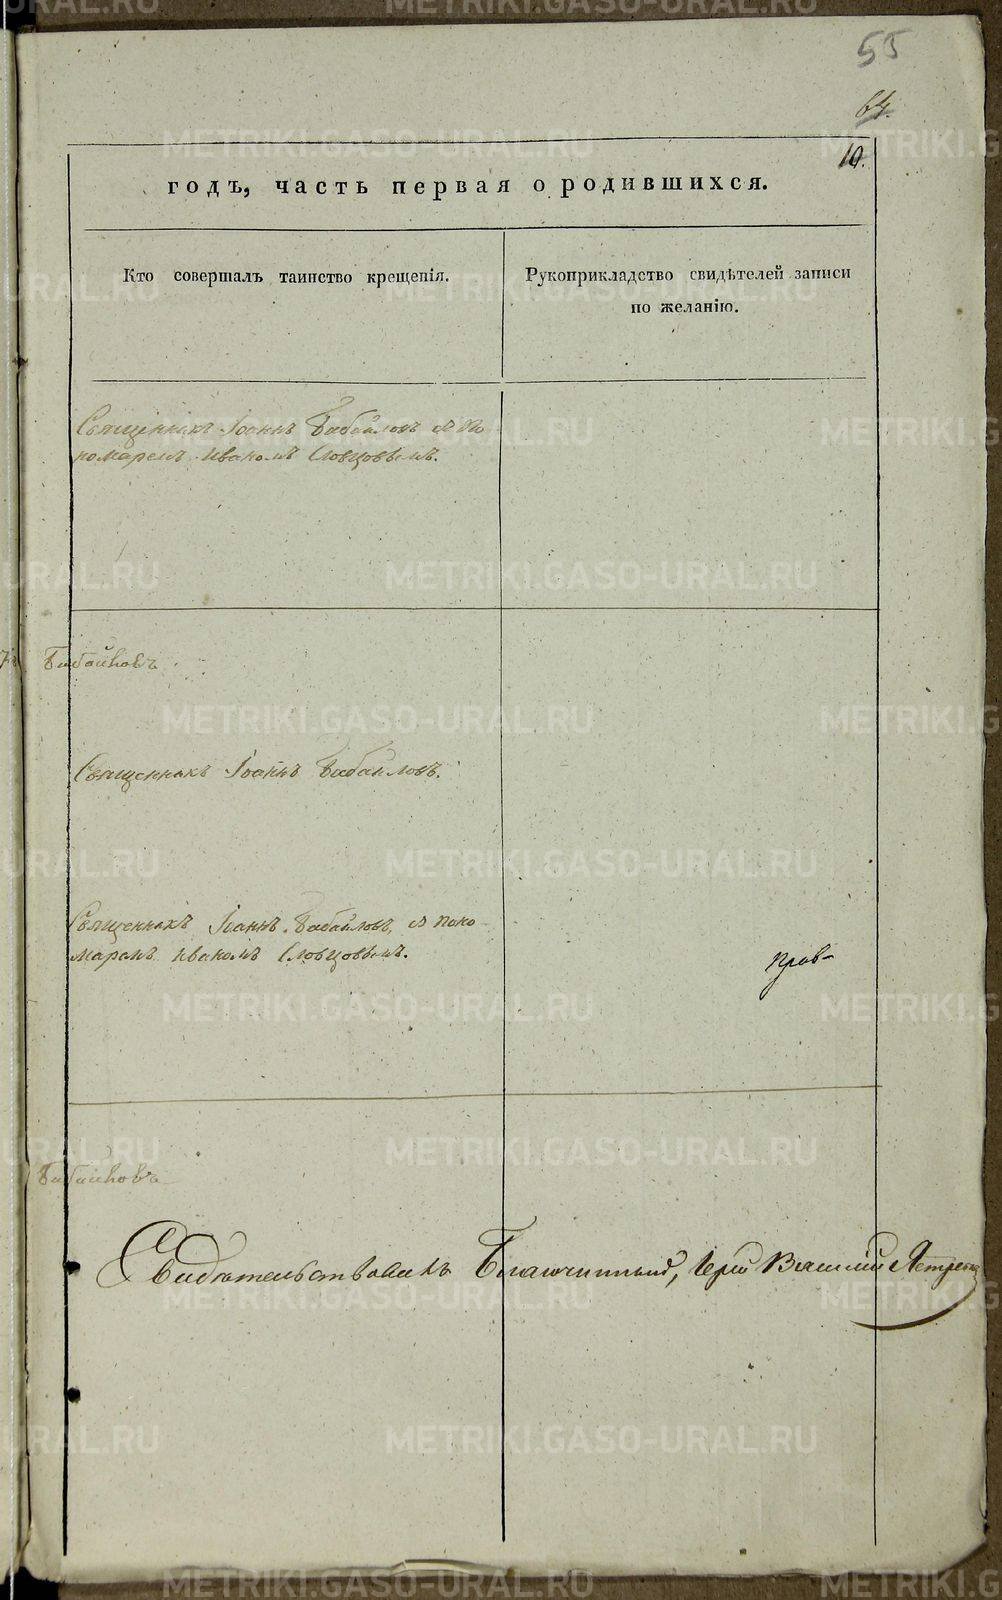 55
64.
10.
годъ, часть первая о родившихся.
Кто совершалъ таинство крещенія.
Рукоприкладство свидѣтелей записи
по желанію.
Священникъ Іоаннъ Бабайловъ
номаремъ Иваномъ Словцовымъ.
Священникъ Іоаннъ Бабайловъ.
Священникъ Іоаннъ Бабайловъ, поно
маремъ Иваномъ Словцовымъ.
Свидѣтельствовалъ Благочинный, Іерей Василій
METRIKI.GASO-URAL.RU